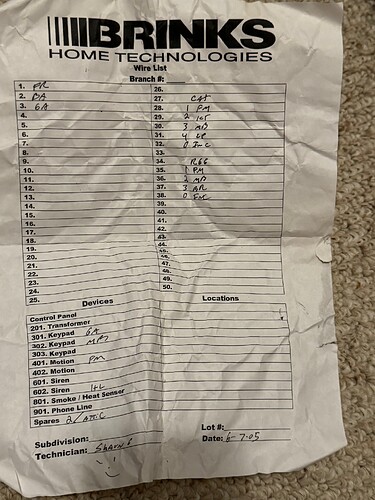 BRINKS
HOME TECHNOLOGIES
Wire List
Branch#:
1. FR
2. BA
3. GA
4.
5.
6.
7.
8.
9.
10.
11.
12.
13.
14.
15.
16.
17.
18.
19.
20.
21.
22.
23.
24.
25.
26.
27. CAT
28. 1 FM
29. 2
30. 3 MB
31. 4
32. 0 Inc
33.
34. RG6
35. 1 FM
36. 2 MB
37. 3 BR
38. 0
39.
40.
41.
42.
43.
44.
45.
46.
47.
48.
49.
50.
Devices Locations
Control Panel
201. Transformer
301. Keypad GA
302. Keypad MBD
303. Keypad
401. Motion FM
402. Motion
601. Siren
602. Siren HL
801. Smoke / Heat Sensor
901. Phone Line
Spares 2/ATTIC
Subdivision:
Lot#:
Technician: SHAWN G
Date: 6-7-05